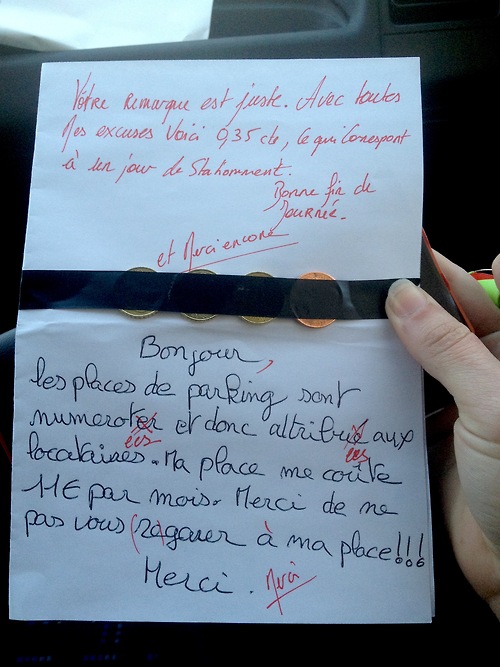 Vôtre remarque est juste. Avec toutes
Mes excuses Voici 0,35 cts, ce qui Correspont
à un jour de Stationnment.
Bonne fin de
Journée.
et Merci encore
Bonjour,
les places de parking sont
numeroter ées et donc attribué ées aux
locataires. Ma place me coûte
11€ par mois. Merci de ne
pas vous (ra)garer à ma place!!!
Merci. Merci